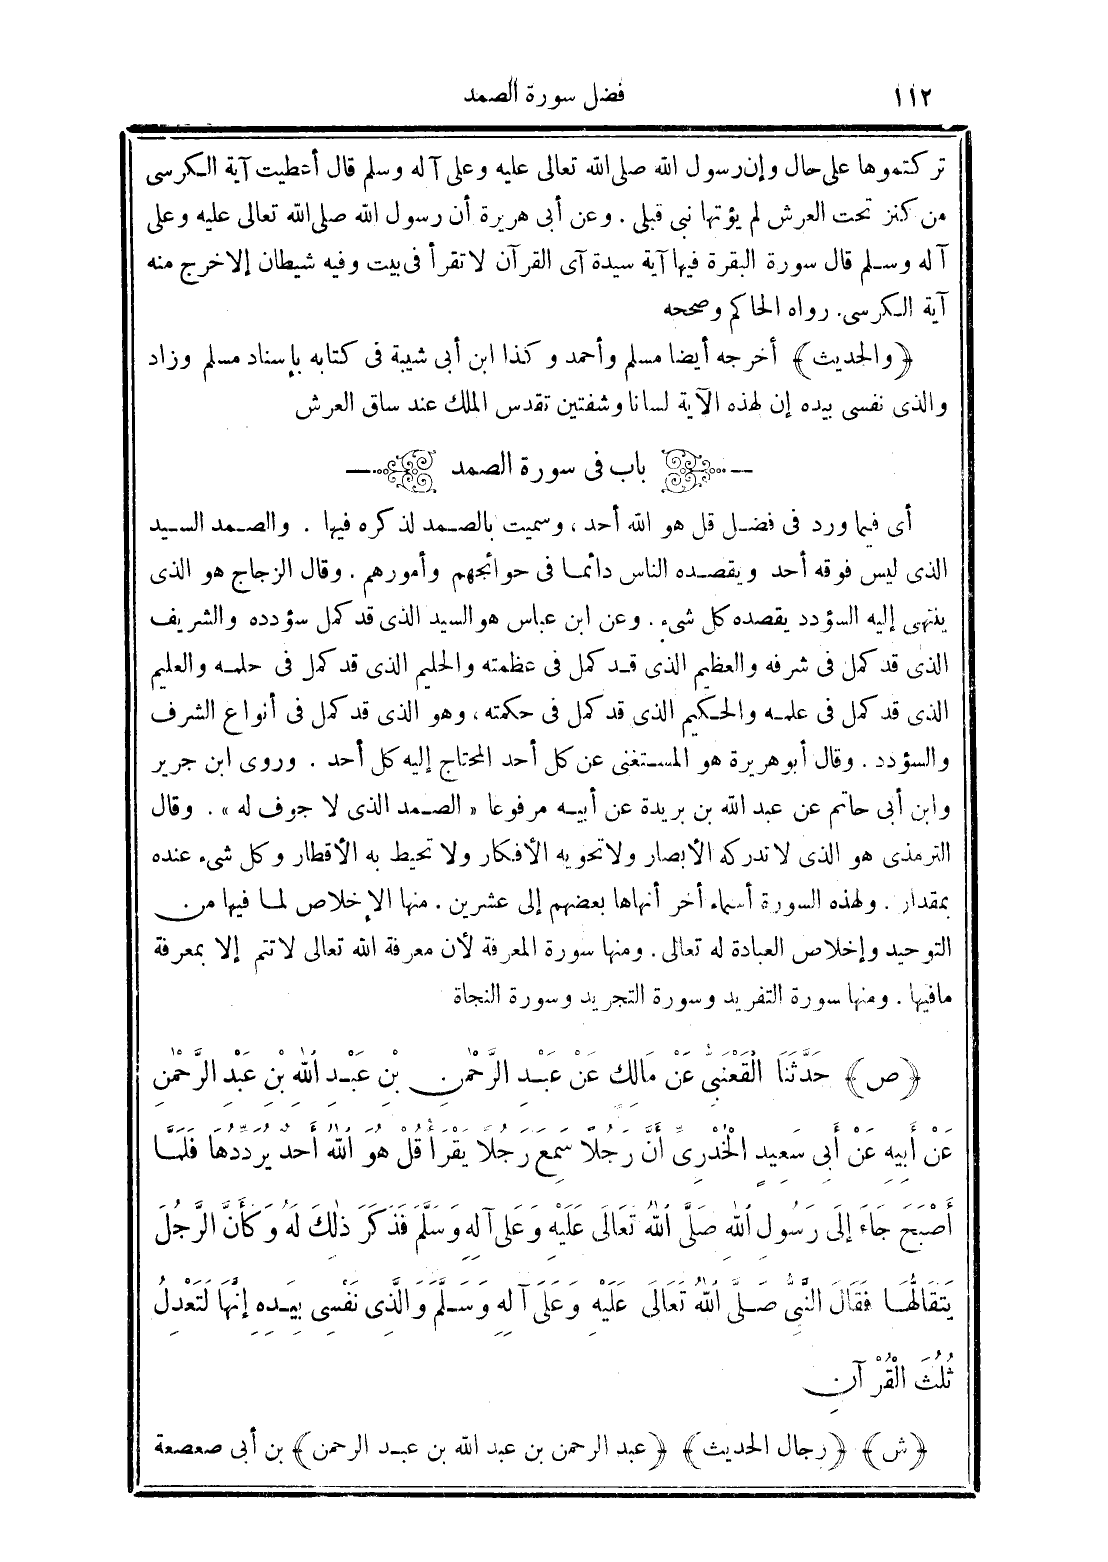 ١١٢
فضل سورة الصمد
تركتموها على حال وإن رسول الله صلى الله تعالى عليه وعلى آله وسلم قال أعطيت آية الكرسى
من كنز تحت العرش لم يؤتها نبى قبلى . وعن أبى هريرة أن رسول الله صلى الله تعالى عليه وعلى
آله وسلم قال سورة البقرة فيها آية سيدة آى القرآن لا تقرأ فى بيت وفيه شيطان إلا خرج منه
آية الكرسى . رواه الحاكم وصححه
﴿ والحديث ﴾ أخرجه أيضا مسلم وأحمد وكذا ابن أبى شيبة فى كتابه بإسناد مسلم وزاد
والذى نفسى بيده إن لهذه الآية لسانا وشفتين تقدس الملك عند ساق العرش
باب فى سورة الصمد
أى فيما ورد فى فضل قل هو الله أحد ، وسميت بالصمد لذكره فيها . والصمد السيد
الذى ليس فوقه أحد ويقصده الناس دائما فى حوائجهم وأمورهم . وقال الزجاج هو الذى
ينتهى إليه السؤدد يقصده كل شىء . وعن ابن عباس هو السيد الذى قد كمل سؤدده والشريف
الذى قد كمل فى شرفه والعظيم الذى قد كمل فى عظمته والحليم الذى قد كمل فى حلمه والعليم
الذى قد كمل فى علمه والحكيم الذى قد كمل فى حكمته ، وهو الذى قد كمل فى أنواع الشرف
والسؤدد . وقال أبو هريرة هو المستغنى عن كل أحد المحتاج إليه كل أحد . وروى ابن جرير
وابن أبى حاتم عن عبد الله بن بريدة عن أبيه مرفوعا « الصمد الذى لا جوف له » . وقال
الترمذى هو الذى لا تدركه الأبصار ولا تحويه الأفكار ولا تحيط به الأقطار وكل شىء عنده
بمقدار . ولهذه السورة أسماء أخر أنهاها بعضهم إلى عشرين . منها الإخلاص لما فيها من
التوحيد وإخلاص العبادة له تعالى . ومنها سورة المعرفة لأن معرفة الله تعالى لا تتم إلا بمعرفة
مافيها . ومنها سورة التفريد وسورة التجريد وسورة النجاة
﴿ ص ﴾ حَدَّثَنَا الْقَعْنَبِىُّ عَنْ مَالِكٍ عَنْ عَبْدِ الرَّحْمٰنِ بْنِ عَبْدِ اللهِ بْنِ عَبْدِ الرَّحْمٰنِ
عَنْ أَبِيهِ عَنْ أَبِى سَعِيدٍ الْخُدْرِىِّ أَنَّ رَجُلًا سَمِعَ رَجُلًا يَقْرَأُ قُلْ هُوَ اللهُ أَحَدٌ يُرَدِّدُهَا فَلَمَّا
أَصْبَحَ جَاءَ إِلَى رَسُولِ اللهِ صَلَّى اللهُ تَعَالَى عَلَيْهِ وَعَلَى آلِهِ وَسَلَّمَ فَذَكَرَ ذٰلِكَ لَهُ وَكَأَنَّ الرَّجُلَ
يَتَقَالُّهَا فَقَالَ النَّبِىُّ صَلَّى اللهُ تَعَالَى عَلَيْهِ وَعَلَى آلِهِ وَسَلَّمَ وَالَّذِى نَفْسِى بِيَدِهِ إِنَّهَا لَتَعْدِلُ
ثُلُثَ الْقُرْآنِ
﴿ ش ﴾ ﴿ رجال الحديث ﴾ ﴿ عبد الرحمن بن عبد الله بن عبد الرحمن ﴾ بن أبى صعصعة